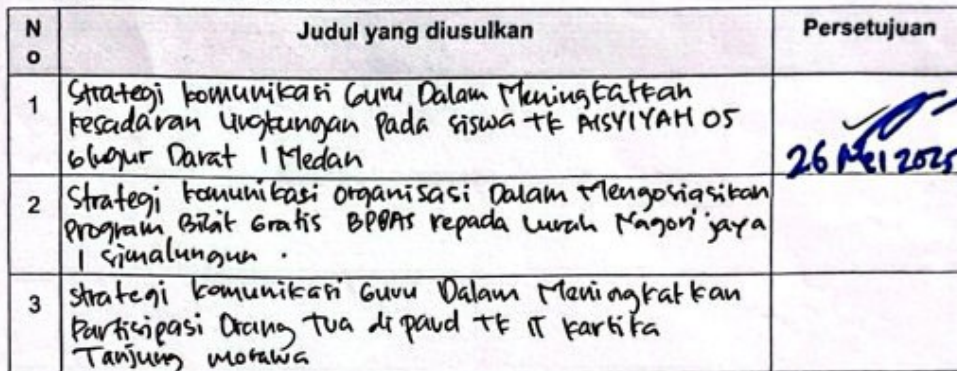 No
Judul yang diusulkan
Persetujuan
1
Strategi komunikasi Guru Dalam Meningkatkan
kesadaran lingkungan Pada siswa TK AISYIYAH 05
Glugur Darat 1 Medan
26 Mei 2025
2
Strategi komunikasi organisasi Dalam Mengosiasikan
Program Bibit Gratis BPDAS kepada Lurah Nagori jaya
1 simalungun .
3
Strategi komunikasi Guru Dalam Meningkatkan
Partisipasi Orang Tua di paud TK IT kartika
Tanjung morawa